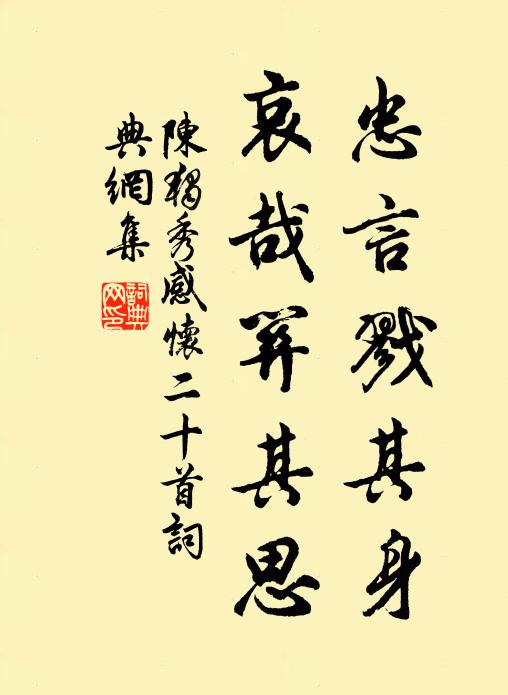 忠言戮其身
哀哉其思
陳獨秀感懷二十首詞
典網集
詞典
网印